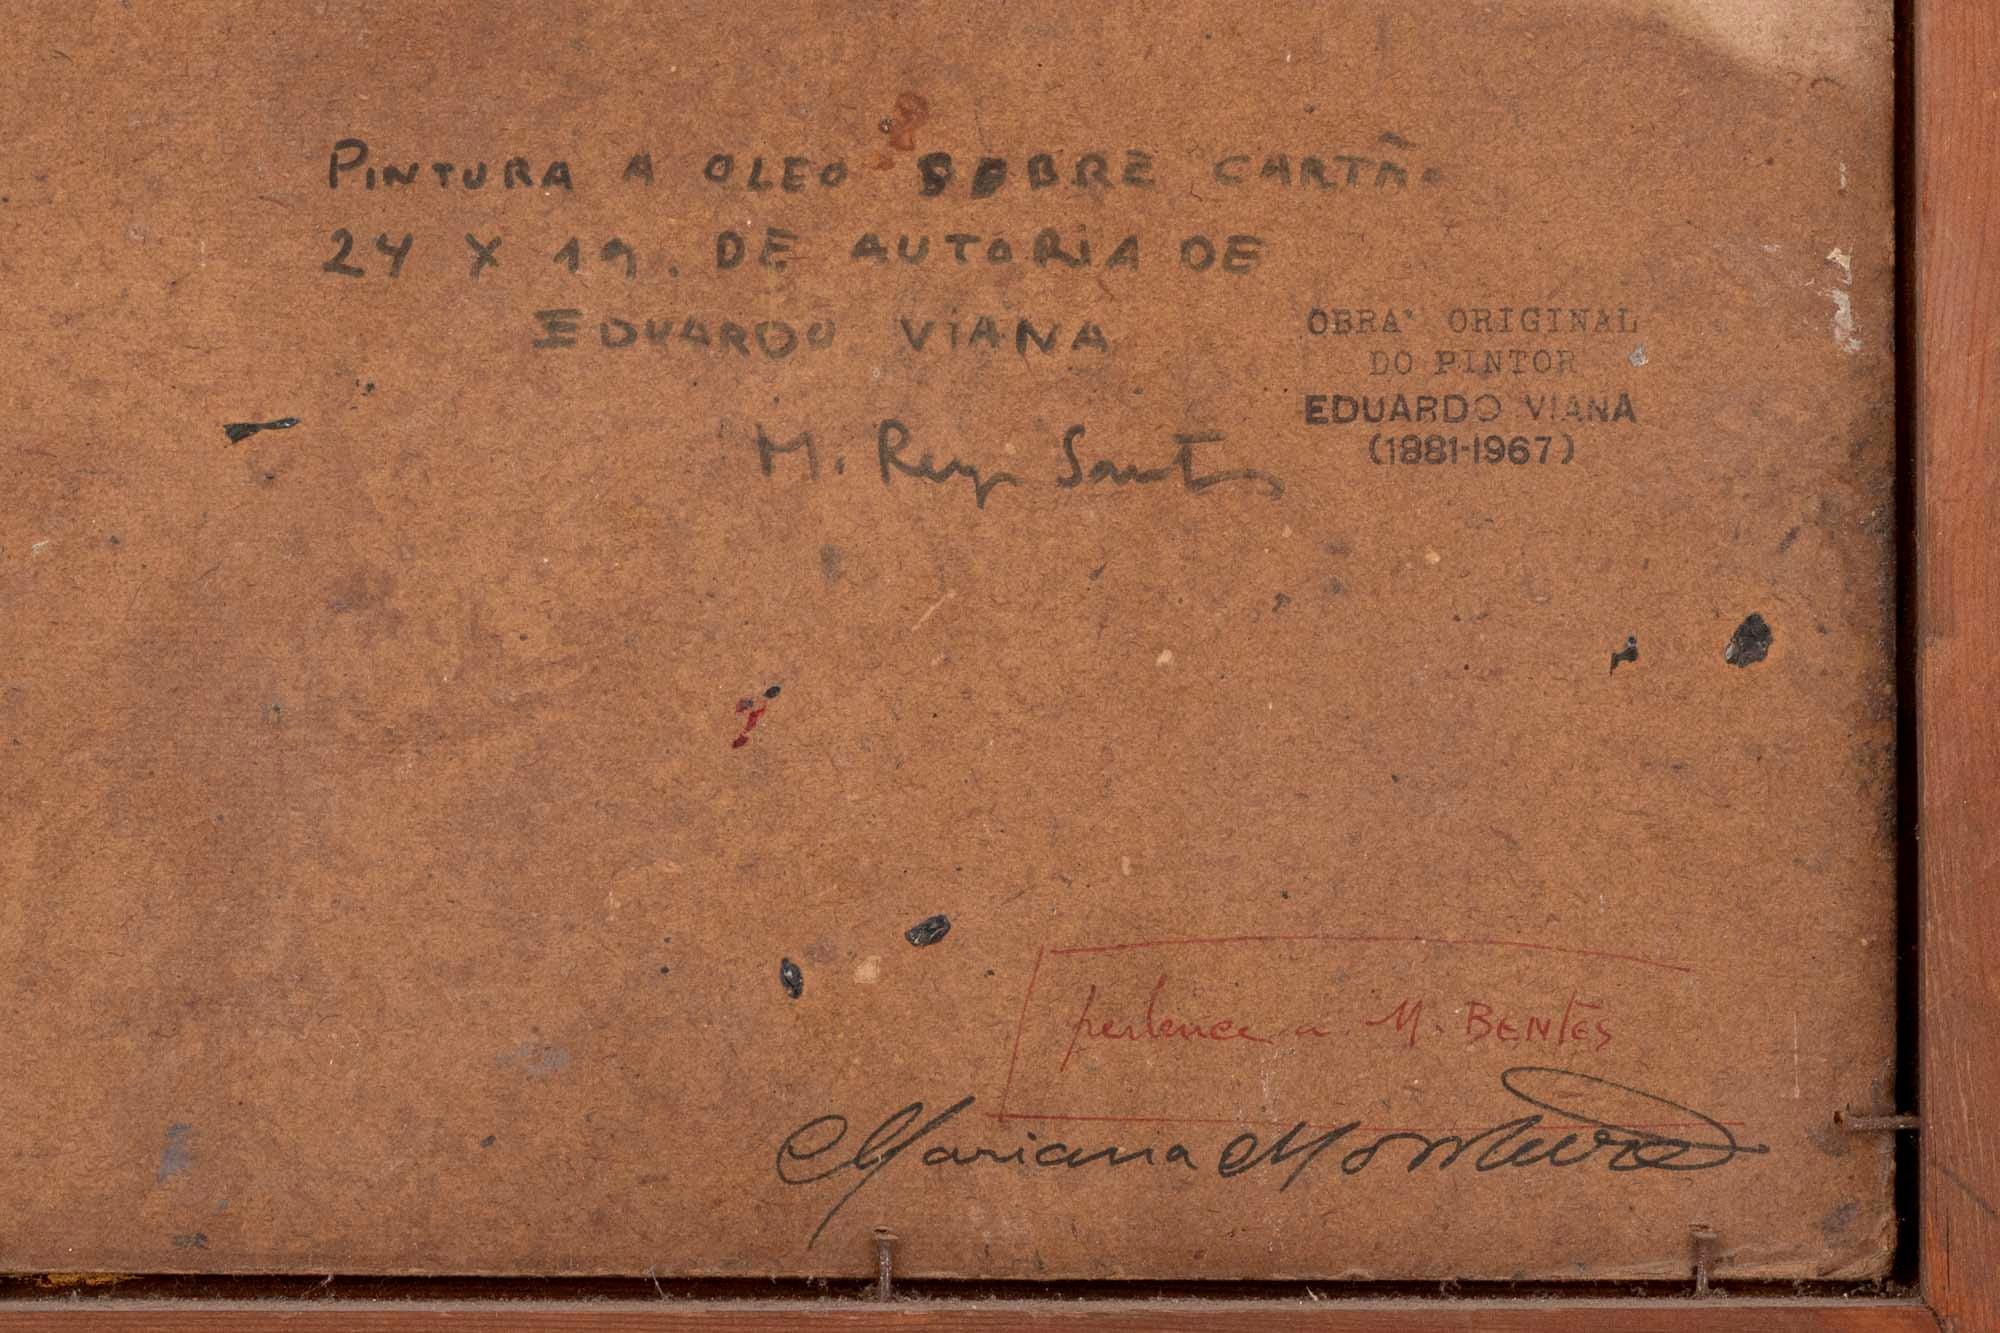 PINTURA A OLEO SOBRE CARTÃO
24 X 19. DE AUTORIA DE
EDUARDO VIANA
M. Rey Santos
OBRA' ORIGINAL
DO PINTOR
EDUARDO VIANA
(1881-1967)
pertence a M. BENTES
Mariana Monteiro